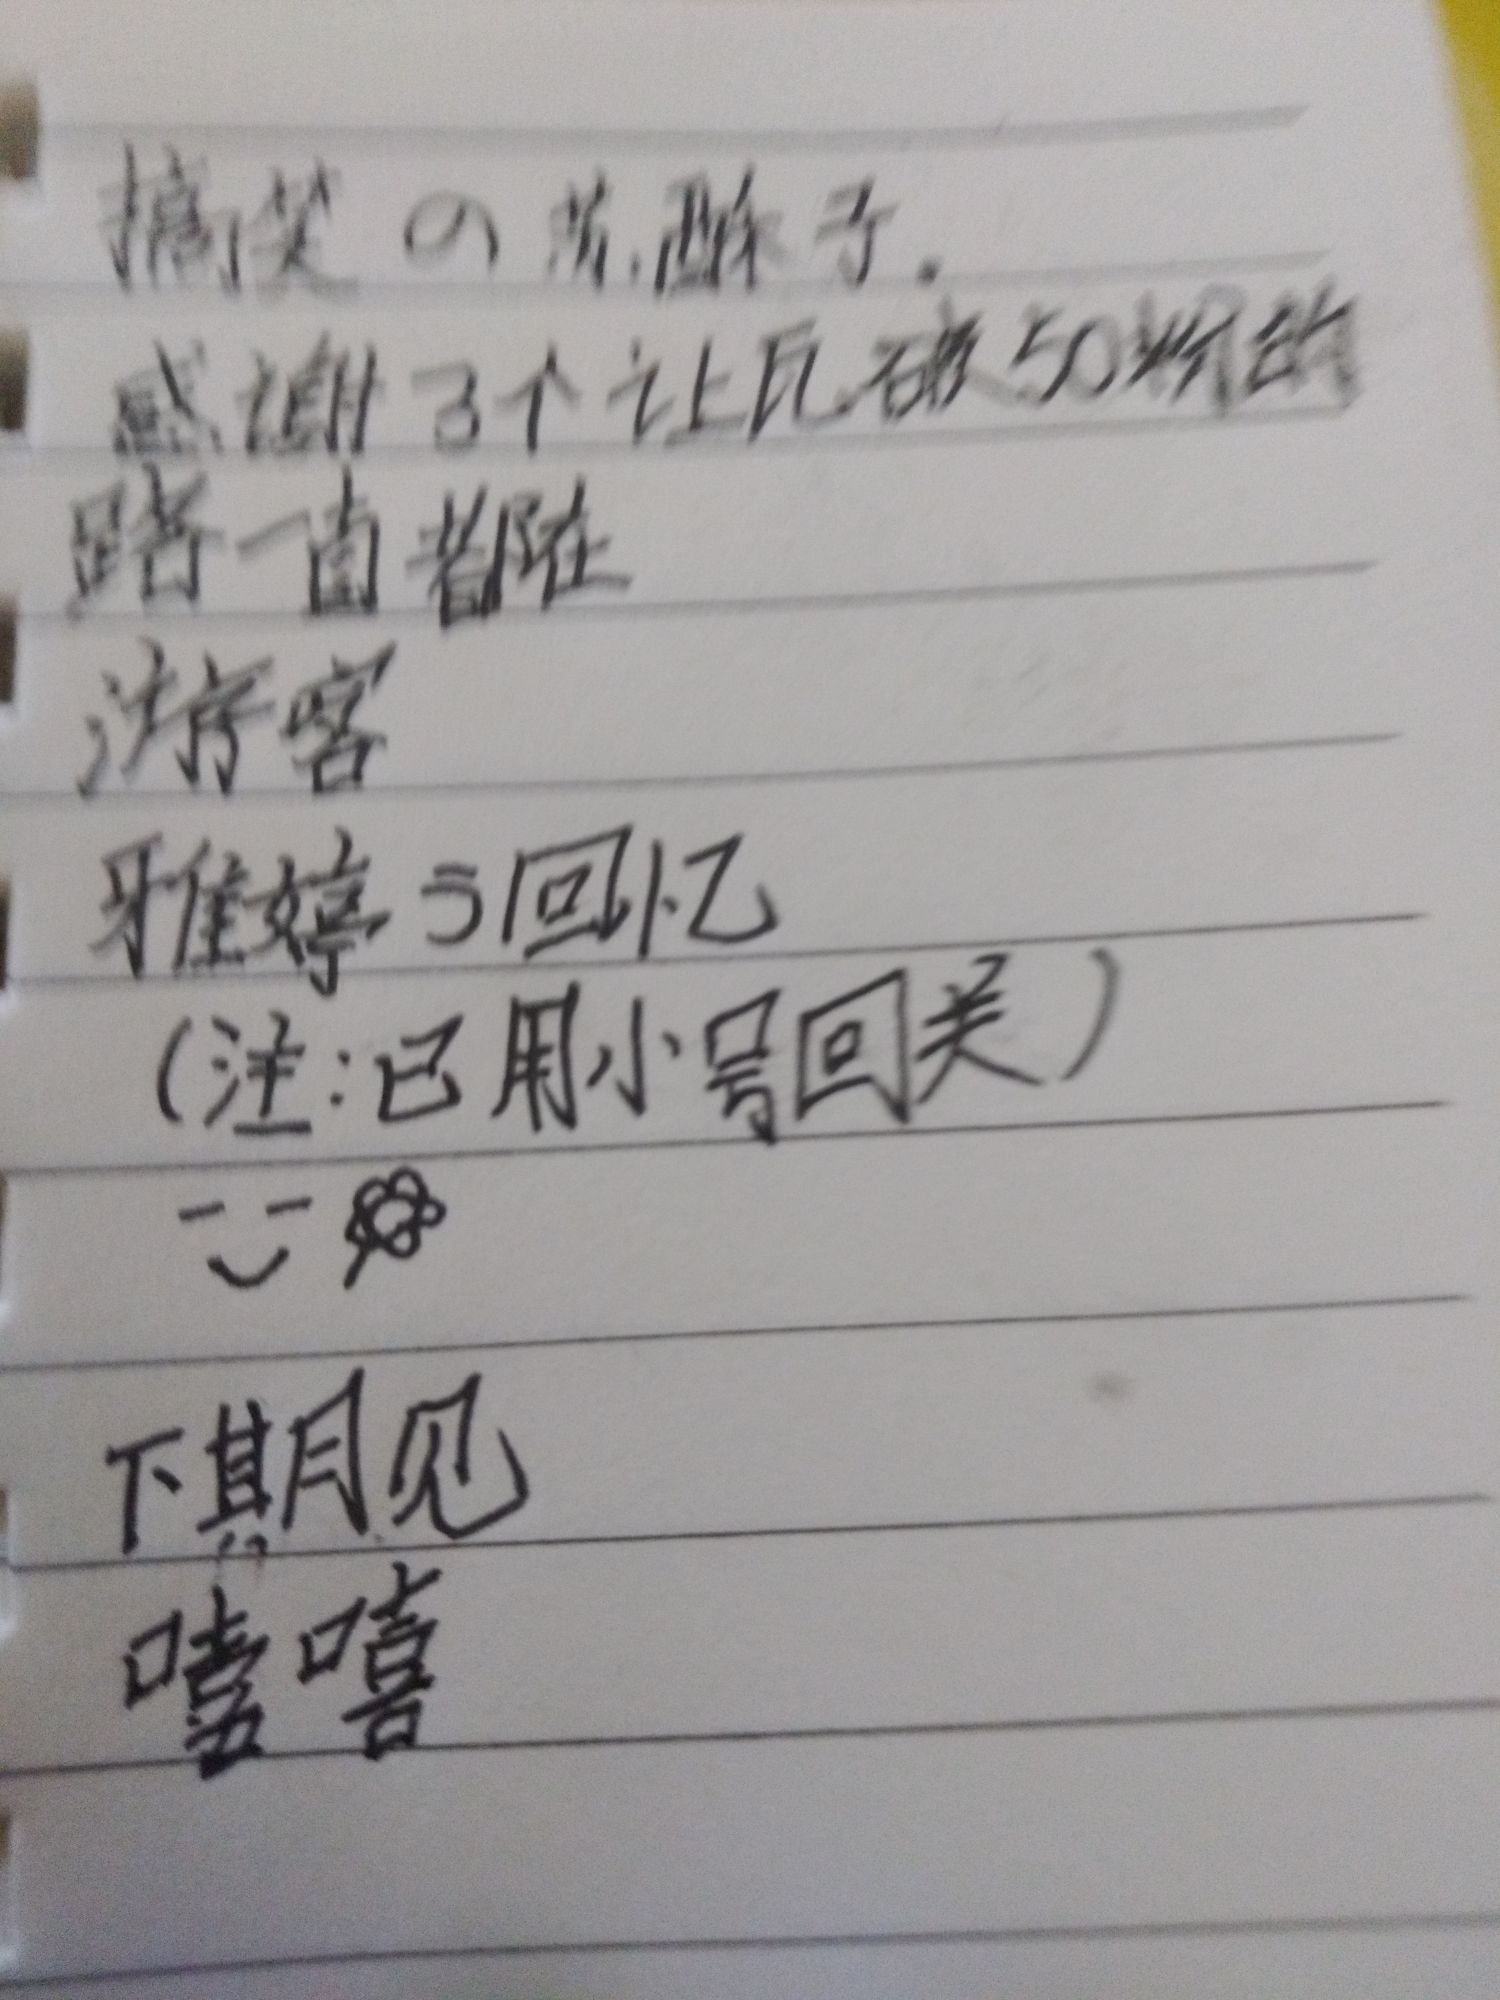 搞笑の苏酥子.
感谢3个让瓦破50粉的
路一直都在
游客
雅婷う回忆
(注:已用小号回关)
下期见
嘻嘻